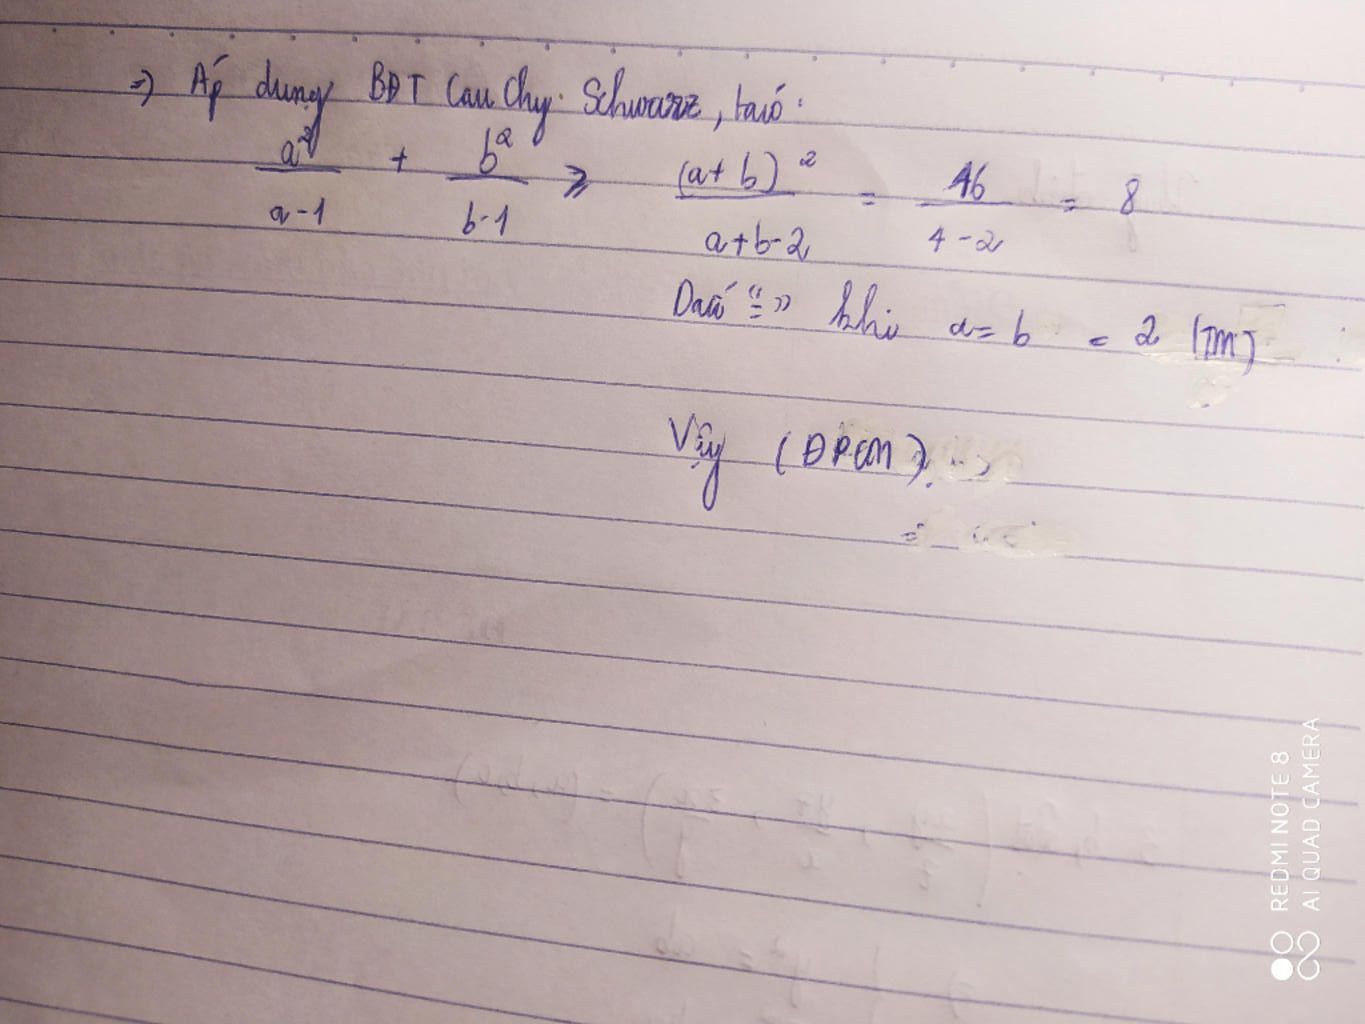 => Áp dụng BĐT Cauchy. Schwarz, ta có:
a²/(a-1) + b²/(b-1) ≥ (a+b)²/(a+b-2) = 16/(4-2) = 8
Dấu "=" khi a=b = 2 (TM)
Vậy (ĐPCM).
REDMI NOTE 8
AI QUAD CAMERA